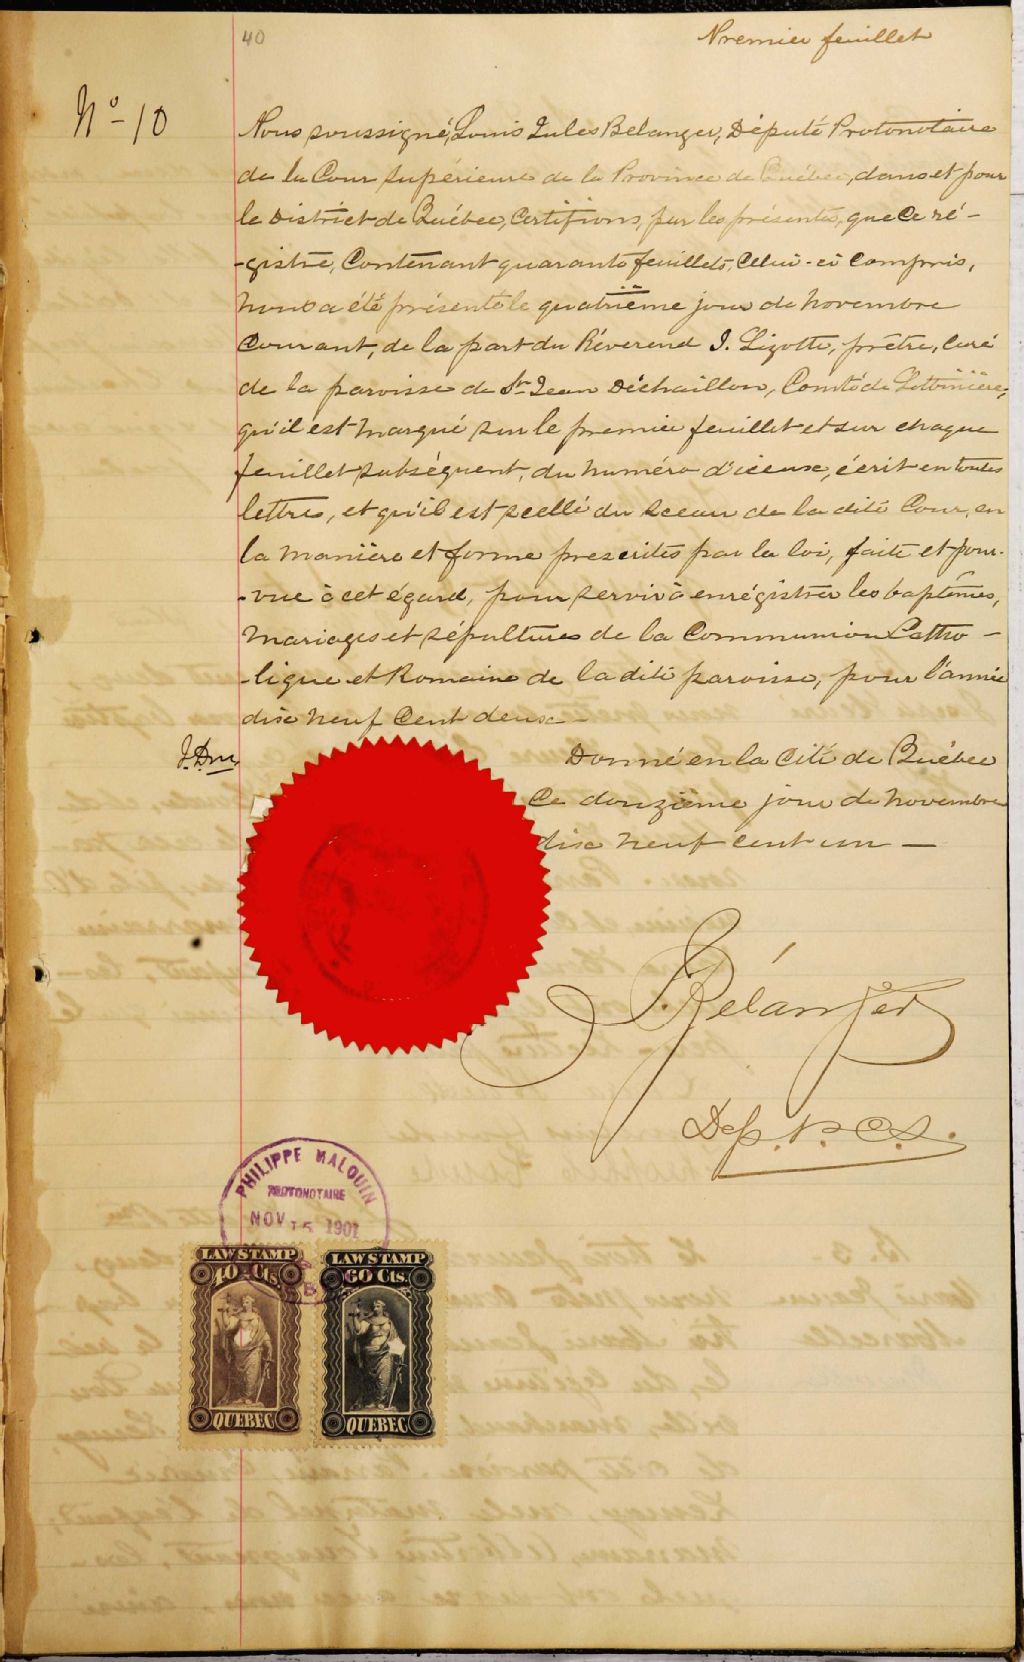 40
Premier feuillet
No - 10
Nous soussigné, Louis Jules Belanger, Député Protonotaire
de la Cour Supérieure de la Province de Québec, dans et pour
le District de Québec, Certifions, par les présentes, que Ce ré-
-gistre, Contenant quarante feuillets, Celui-ci Compris,
nous a été présenté le quatrième jour de Novembre
Courant, de la part du Réverend J. Lizotte, prêtre, Curé
de la paroisse de St Jean Déchaillon, Comté de Lotbinière,
qu'il est marqué sur le premier feuillet et sur chaque
feuillet subséquent, du numéro d'iceux, écrit en toutes
lettres, et qu'il est scellé du sceau de la dite Cour, en
la manière et forme prescrites par la loi, faite et pour-
-vue à cet égard, pour servir à enrégistrer les baptêmes,
mariages et sépultures de la Communion Catho-
-lique et Romaine de la dite paroisse, pour l'année
dix neuf Cent deux -
Donné en la Cité de Québec
Ce douzième jour de novembre
dix neuf cent un -
J. Bélanger
Dep. P. C. S.
PHILIPPE MALOUIN
PROTONOTAIRE
NOV 15 1901
LAW STAMP
40 Cts.
QUEBEC
LAW STAMP
60 Cts.
QUEBEC